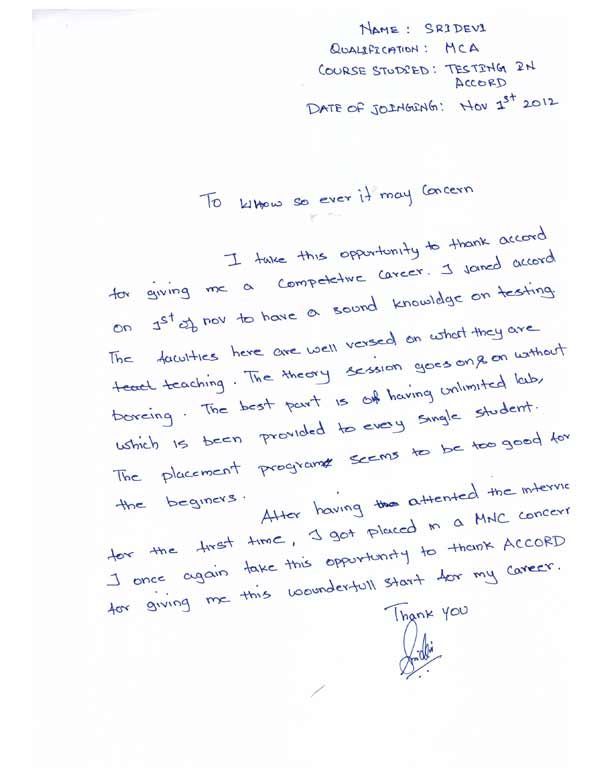 NAME : SRIDEVI
QUALIFICATION : MCA
COURSE STUDIED : TESTING IN
ACCORD
DATE OF JOINGING : Nov 1st 2012
To Whow so ever it may Concern
I take this oppurtunity to thank accord
for giving me a Competetive Career. I joined accord
on 1st of nov to have a sound knowldge on testing.
The faculties here are well versed on what they are
teaching. The theory session goes on & on without
boreing. The best part is of having unlimited lab,
which is been provided to every single student.
The placement program seems to be too good for
the beginers.
After having attented the intervie
for the first time, I got placed in a MNC concern
I once again take this oppurtunity to thank ACCORD
for giving me this wounderfull start for my career.
Thank you
Sridevi